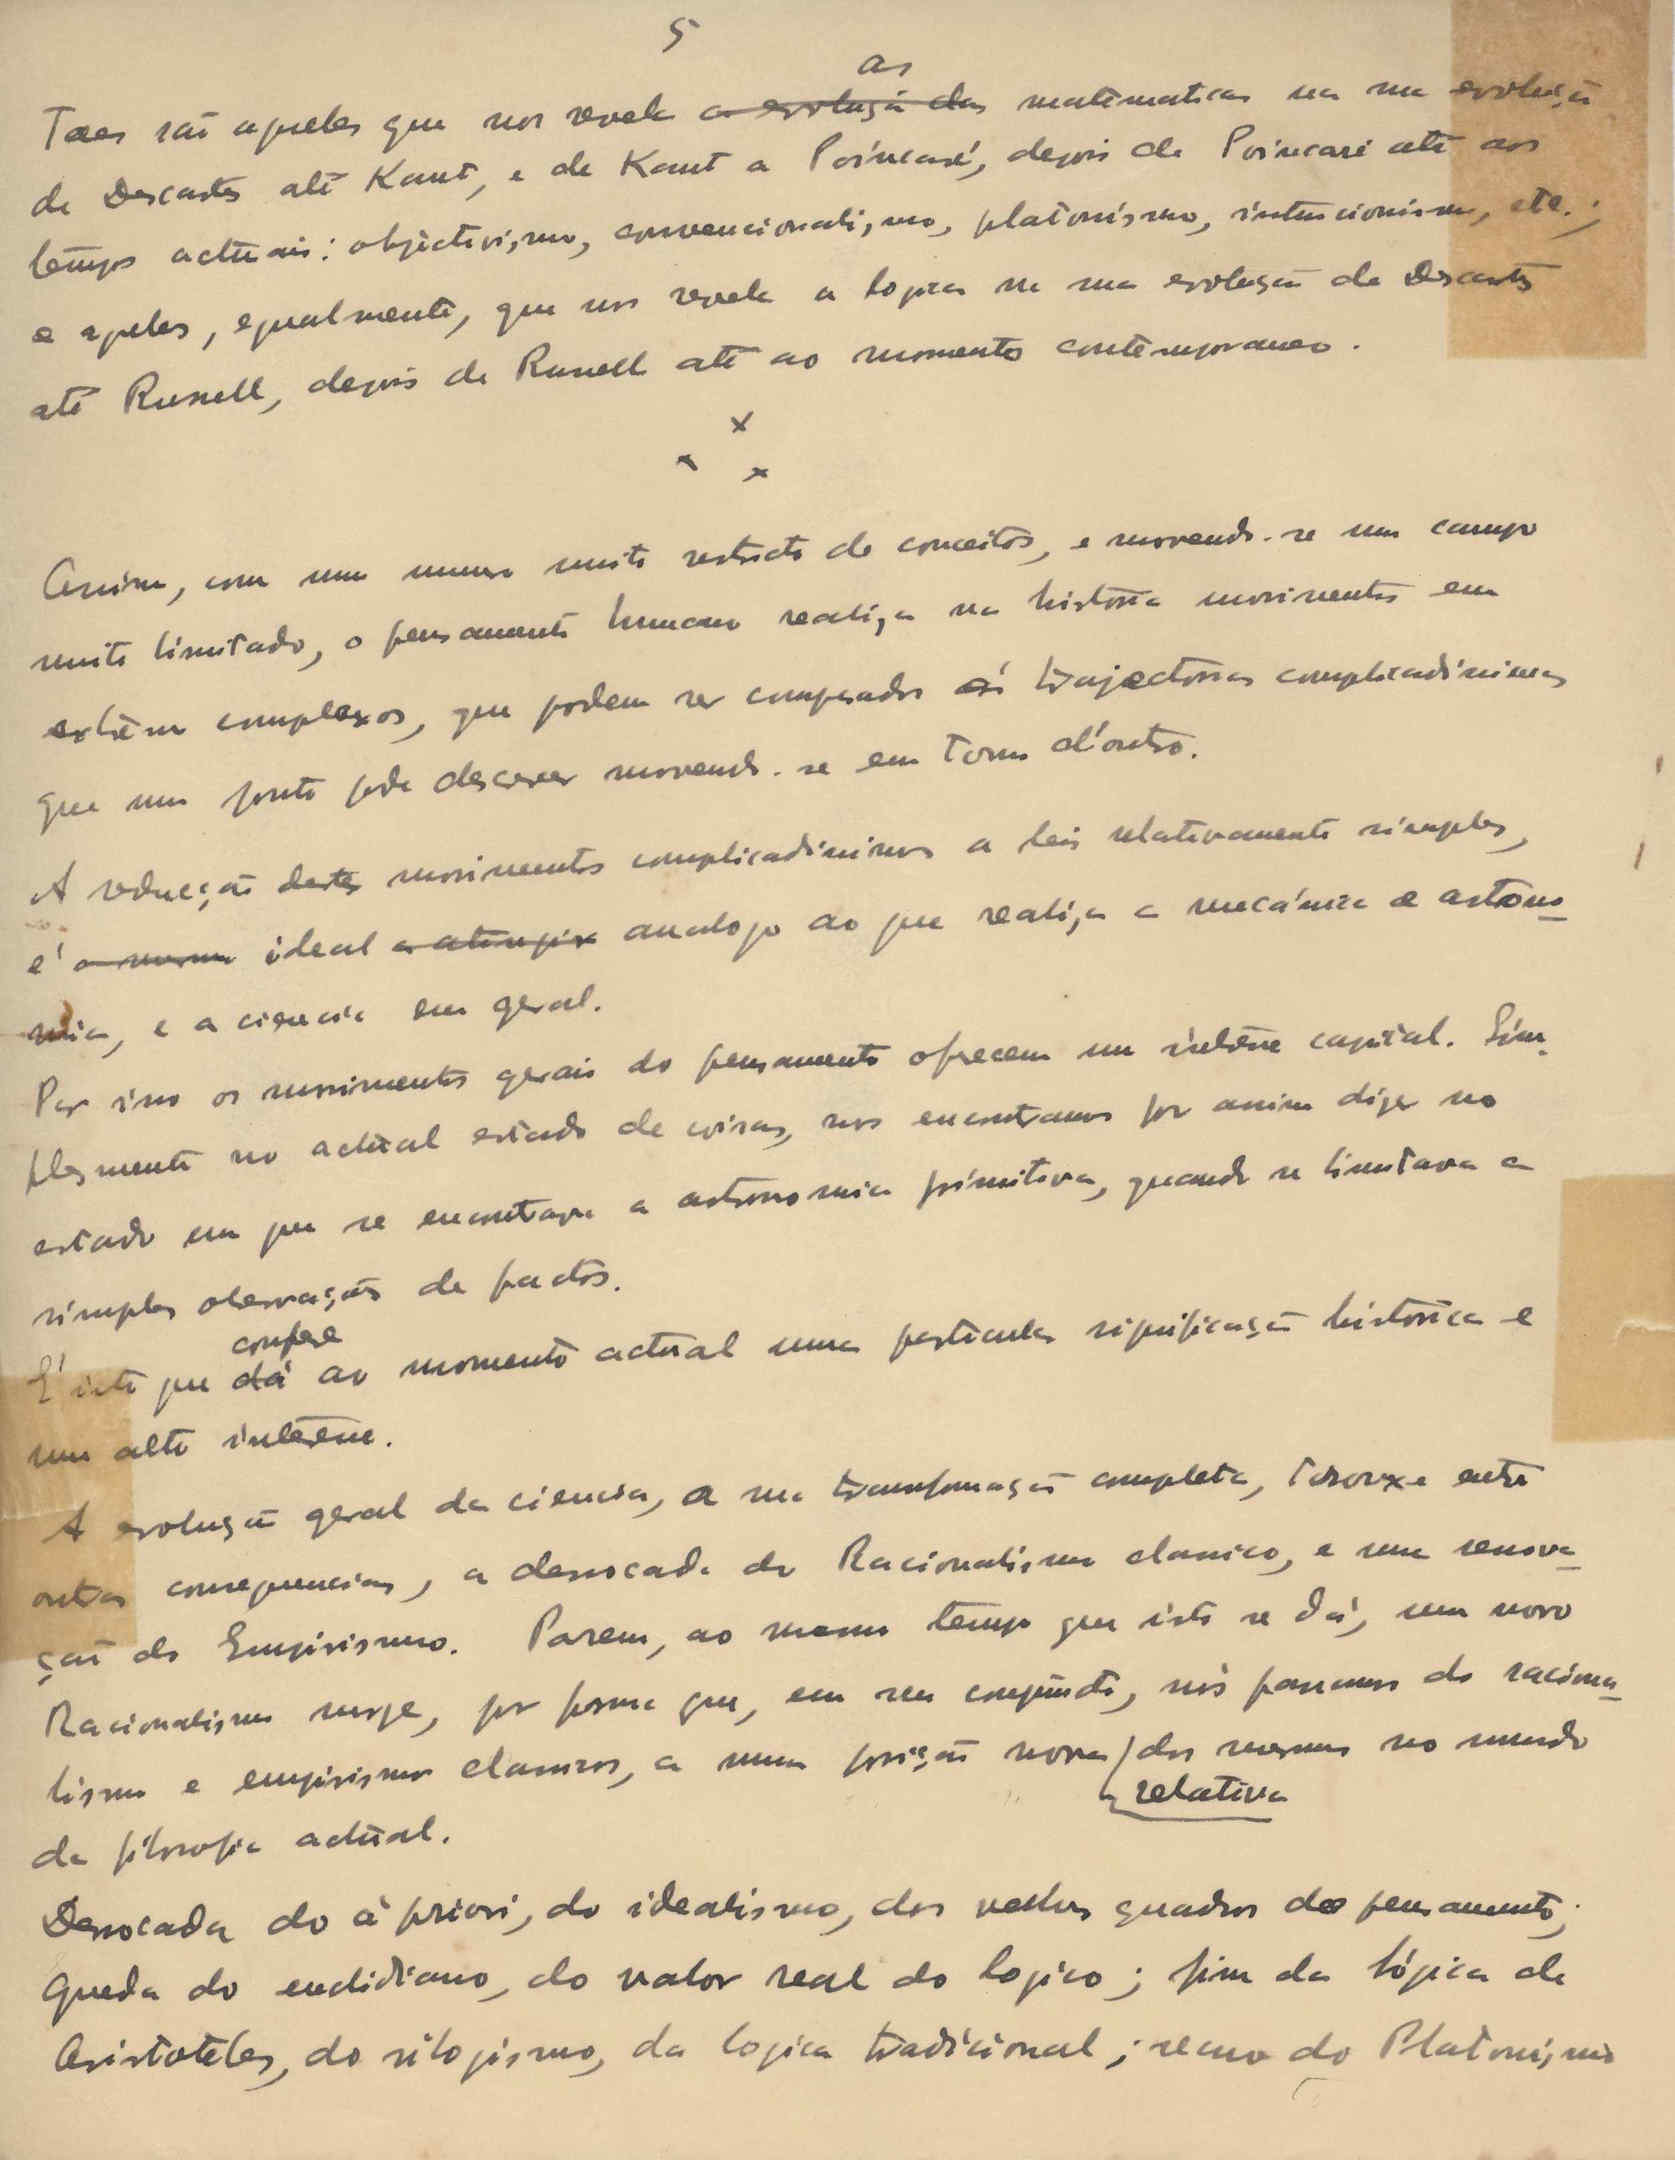 5
as
Taes são aqueles que nos revela a evolução das matematicas na sua evolução
de Descartes até Kant, e de Kant a Poincaré, depois de Poincaré até aos
tempos actuais: objectivismo, convencionalismo, platonismo, intuicionismo, etc.;
e aqueles, egualmente, que nos revela a logica na sua evolução de Descartes
até Russell, depois de Russell até ao momento contemporaneo.
x
x x
Assim, com um numero muito restricto de conceitos, e movendo-se num campo
muito limitado, o pensamento humano realiza na história movimentos em
extremo complexos, que podem ser comparados ás trajectorias complicadissimas
que um ponto pode descrever movendo-se em torno d'outro.
A redução destes movimentos complicadissimos a leis relativamente simples,
é o mesmo ideal a atingir analogo ao que realiza a mecánica e astrono-
mia, e a ciencia em geral.
Por isso os movimentos gerais do pensamento ofrecem um interesse capital. Sim-
plesmente no actual estado de coisas, nos encontramos por assim dizer no
estado em que se encontrava a astronomia primitiva, quando se limitava a
simples observação de factos.
confere
É isto que dá ao momento actual uma particular significação histórica e
um alto interesse.
A evolução geral da ciencia, a sua transformação completa, trouxe entre
outras consequencias, a derrocada do Racionalismo classico, e uma renova-
ção do Empirismo. Porem, ao mesmo tempo que isto se dá, um novo
Racionalismo surge, por forma que, em seu conjunto, nós passamos do raciona-
lismo e empirismo classicos, a uma posição nova dos mesmos no mundo
relativa
da filosofia actual.
Derrocada do à priori, do idealismo, dos velhos quadros do pensamento;
Queda do euclidiano, do valor real do logico; fim da lógica de
Aristoteles, do silogismo, da logica tradicional; recuo do Platonismo